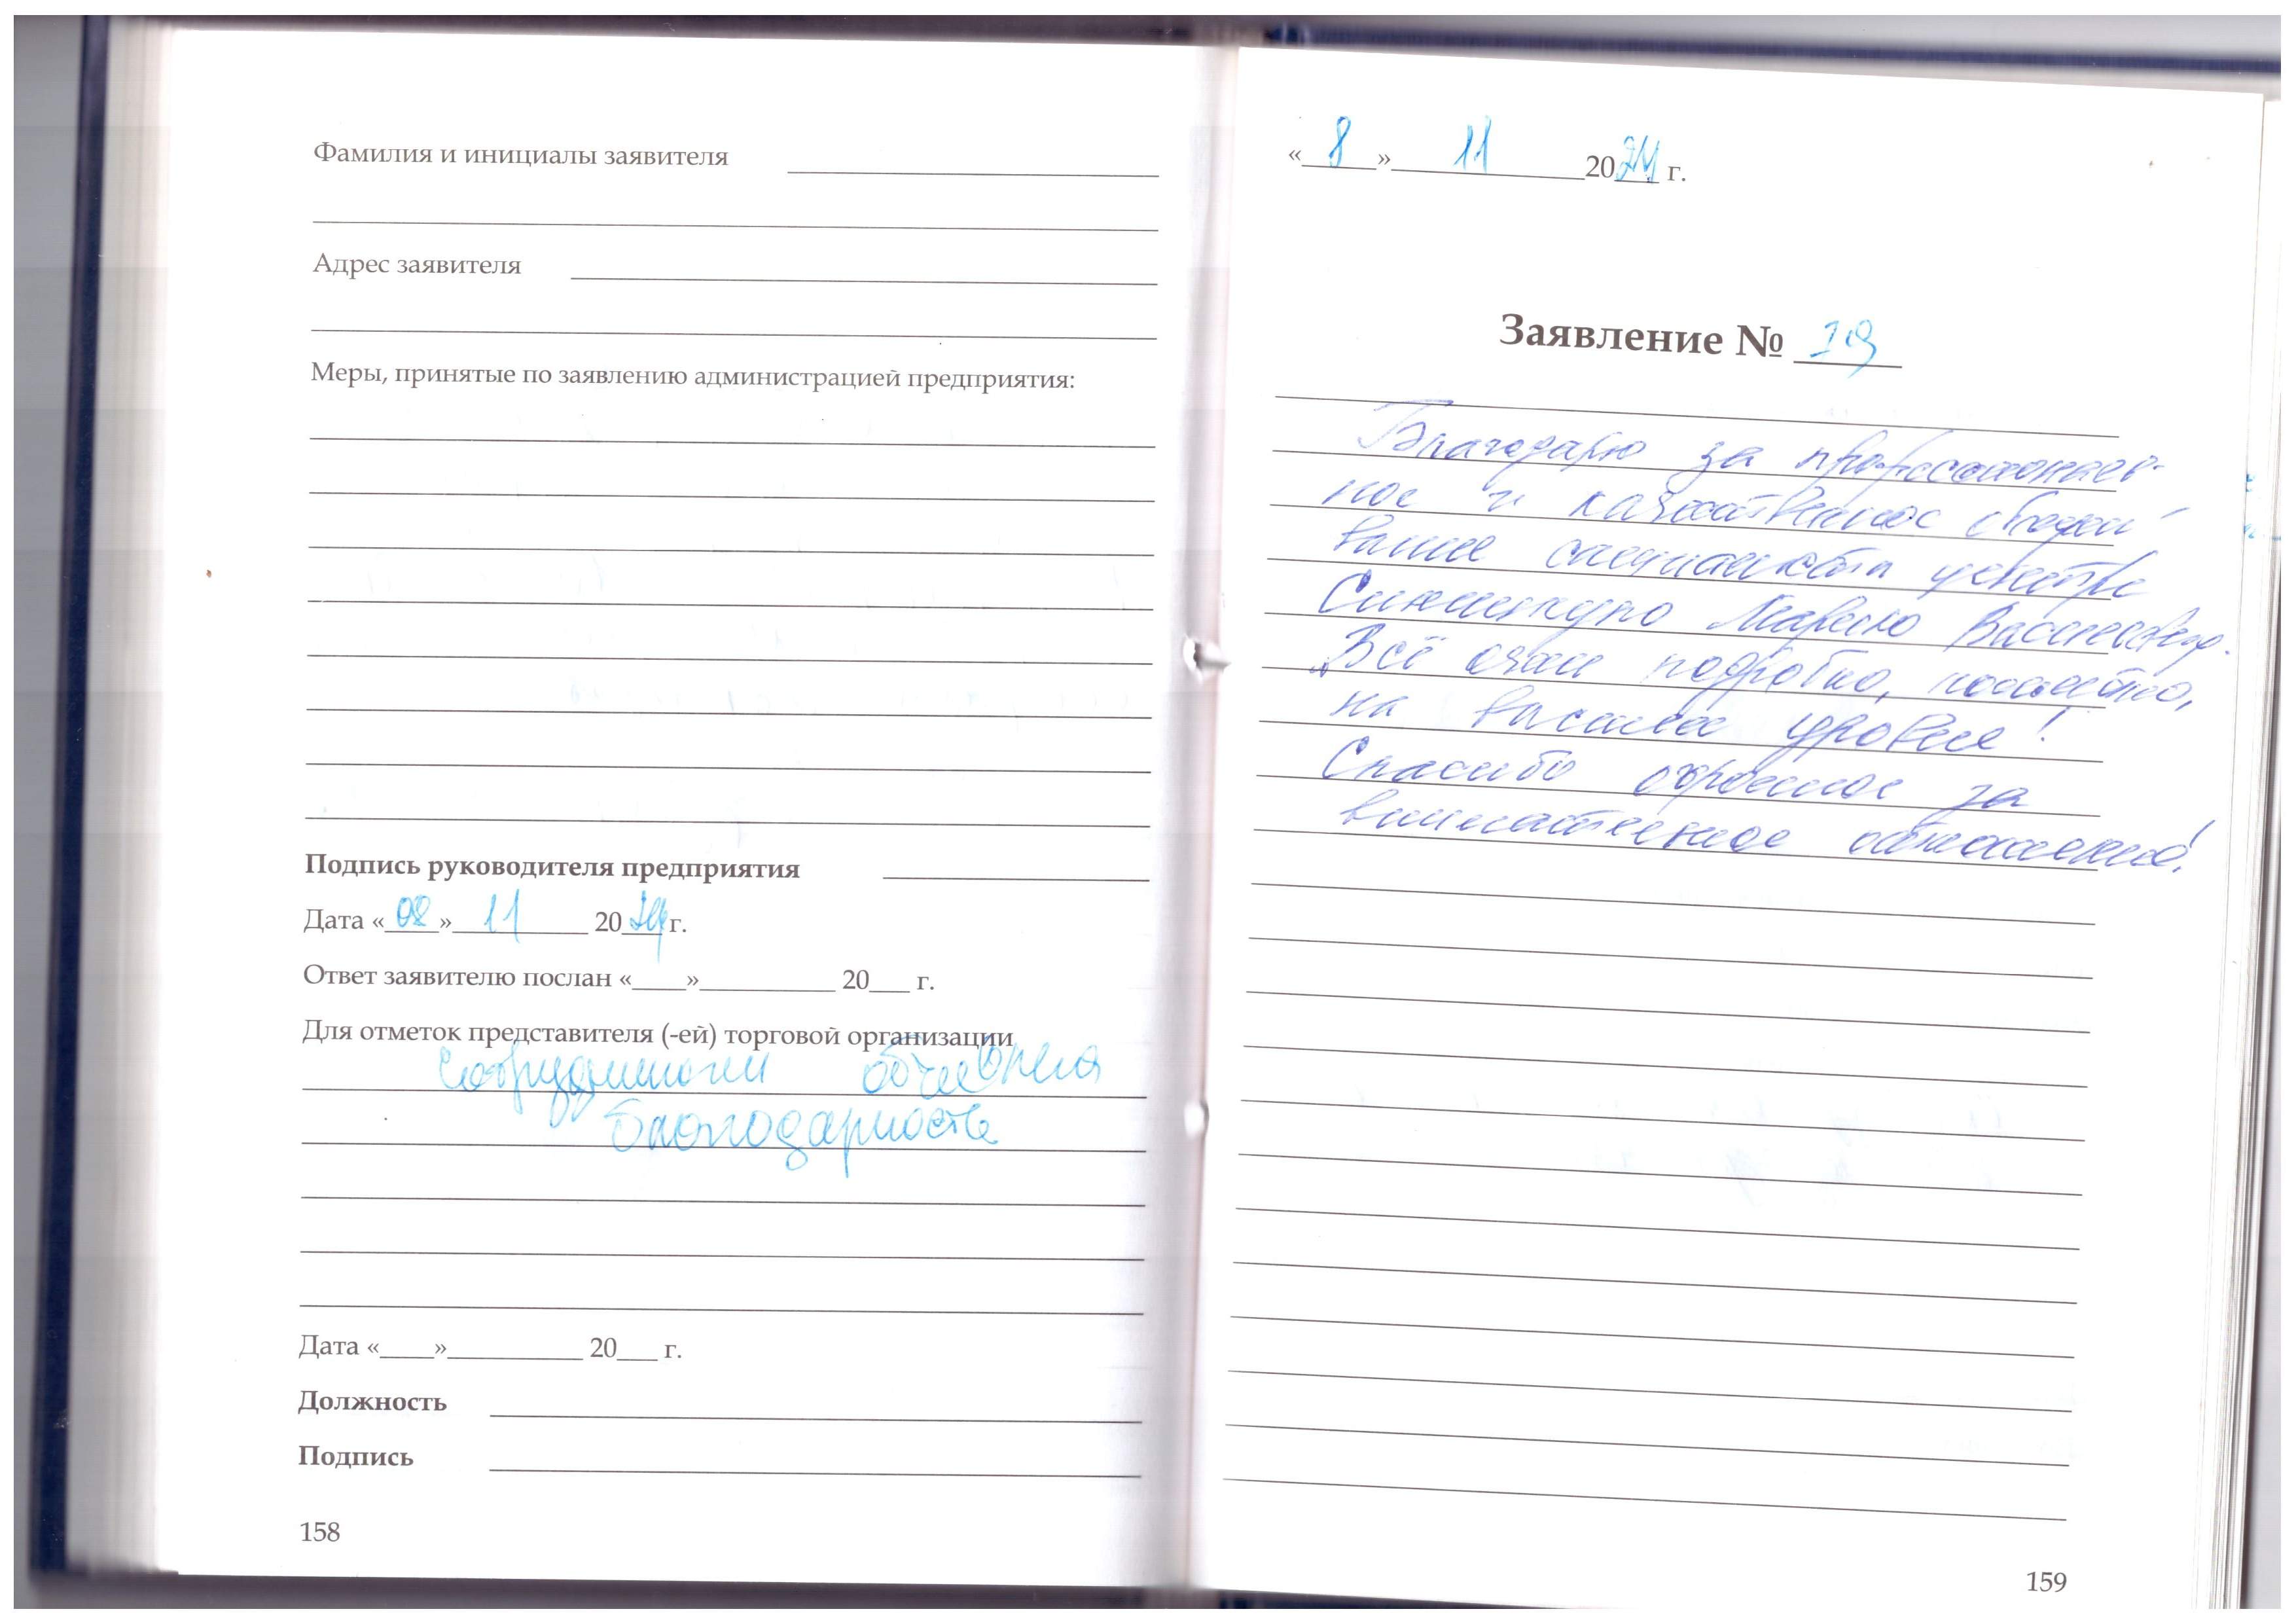 Фамилия и инициалы заявителя
Адрес заявителя
Меры, принятые по заявлению администрацией предприятия:
Подпись руководителя предприятия
Дата «08» 11 2024 г.
Ответ заявителю послан «____»__________ 20___ г.
Для отметок представителя (-ей) торговой организации
сотруднику объявлена
благодарность
Дата «____»__________ 20___ г.
Должность
Подпись
158
«8» 11 2024 г.
Заявление № 19
Благодарю за профессиональ-
ное и качественное
специалиста центра
Марию Васильевну.
Всё очень подробно,
на высшем уровне!
Спасибо огромное за
внимательное отношение!
159